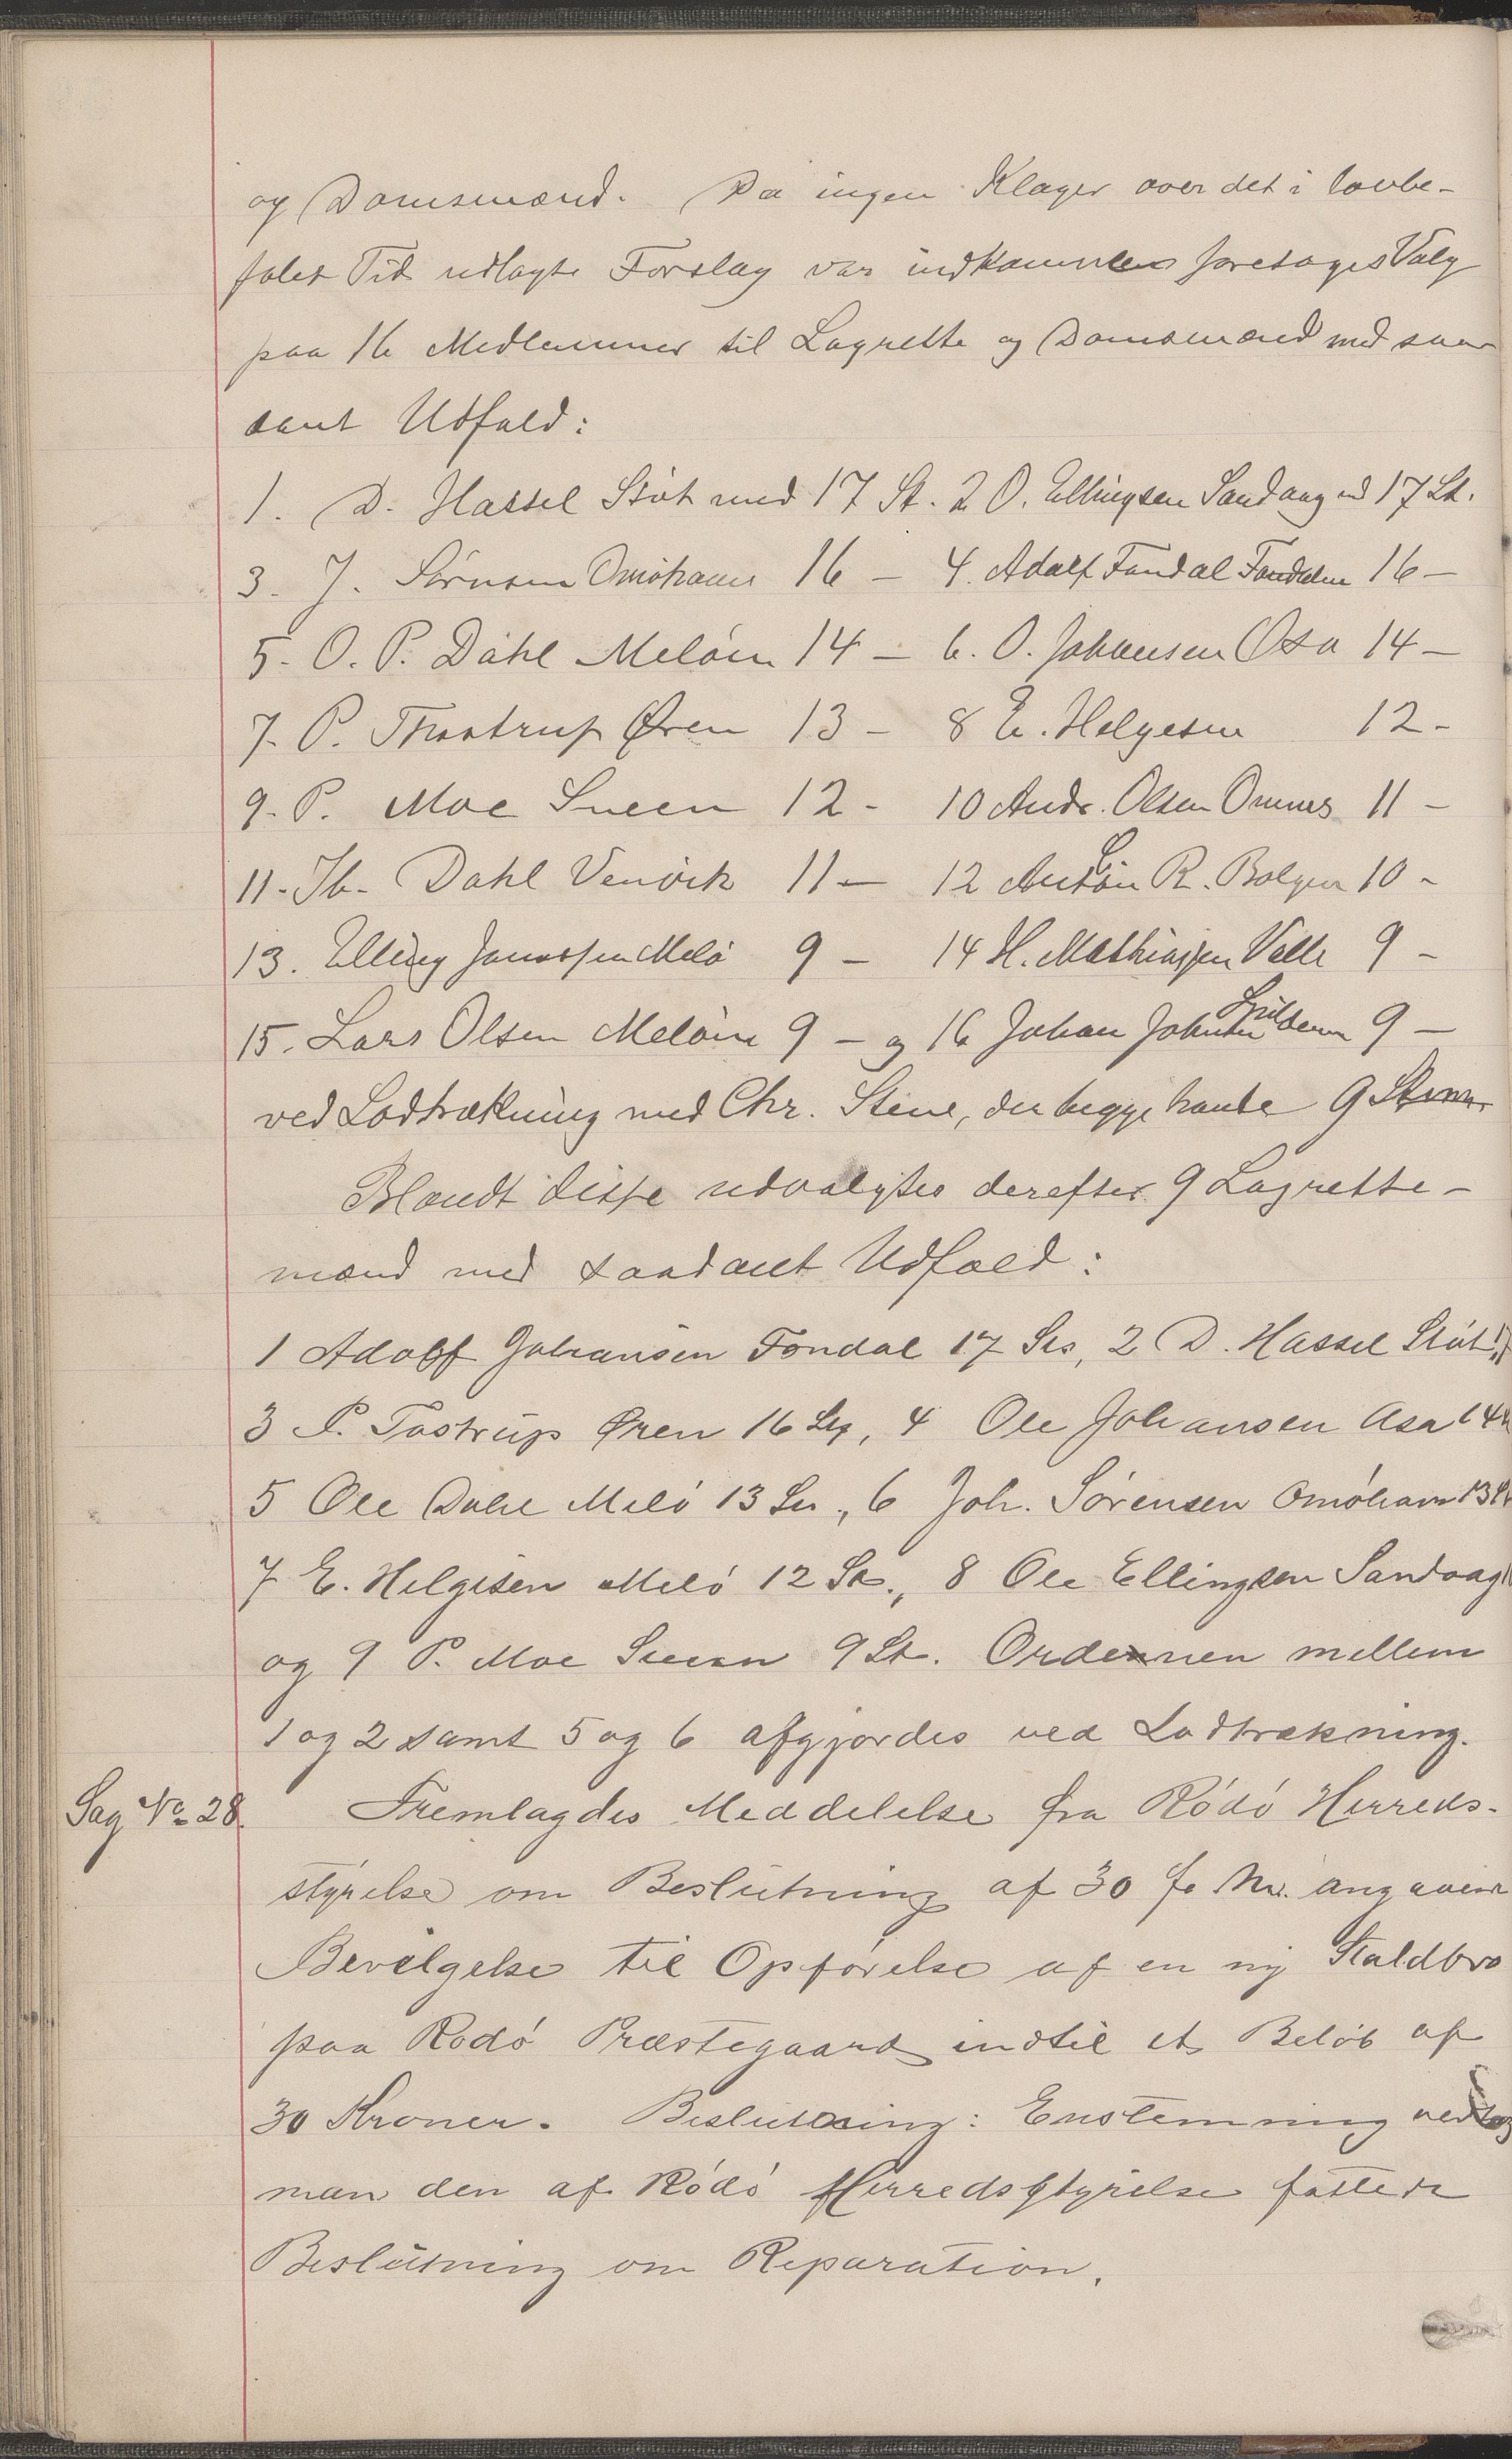 og Domsmænd. Da ingen Klager over det i lovbe-
falet Tid udlagte Forslag var indkommen foretoges Valg
paa 16 Medlemmer til Lagrette og Domsmænd med saa-
dant Udfald:
1. D. Hassel Støt med 17 St. 2 O. Ellingsen Sandaag md 17 St.
3. J. Sørnsen Omøhavn 16 - 4. Adolf Fondal Fondalen 16 -
5. O. P. Dahl Meløen 14 - 6. O. Johansen Osa 14 -
7. P. Thostrup Øren 13 - 8 E. Helgesen 12 -
9. P. Moe Sneen 12 - 10 Andr. Olsen Omnes 11 -
11. Ib. Dahl Venvik 11 - 12 Anton R. Bolgen 10 -
13. Elling Jonassen Melø 9 - 14 H. Mathiassen Valle 9 -
15. Lars Olsen Meløen 9 - og 16 Johan Johnsen Spilderen 9 -
ved Lodtrækning med Chr. Stene, der begge havde 9 Stem.
Blandt disse udvalgtes derefter 9 Lagrette-
mænd med saadant Udfald:
1 Adolf Johansen Fondal 17 St, 2 D. Hassel Støt
3 P. Tostrup Øren 16 St, 4 Ole Johansen Asa 14
5 Ole Dahl Melø 13 St., 6 Joh. Sørensen Omøhavn 13 St
7 E. Helgesen Melø 12 St., 8 Ole Ellingsen Sandaag
og 9 P. Moe Sneen 9 St. Ordenen mellem
1 og 2 samt 5 og 6 afgjordes ved Lodtrækning.
Sag No 28. Fremlagdes Meddelelse fra Rødø Herreds-
styrelse om Beslutning af 30 f. M. angaaende
Bevilgelse til Opførelse af en ny Staldbro
paa Rødø Præstegaard indtil et Beløb af
30 Kroner. Beslutning: Enstemmig vedtog
man den af Rødø Herredsstyrelse fattede
Beslutning om Reparation.